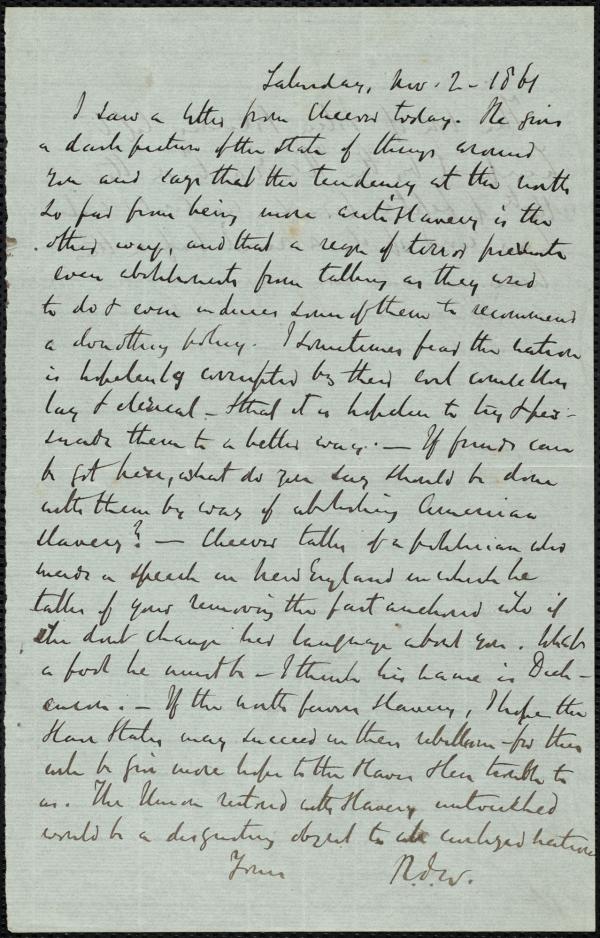 Saturday, Nov. 2 - 1861
I saw a letter from Cheever today. He gives
a dark picture of the state of things around
you and says that the tendency at the north
so far from being more antislavery is the
other way, and that a reign of terror prevents
even abolitionists from talking as they used
to do & even induces some of them to recommend
a donothing policy. I sometimes fear the nation
is hopelessly corrupted by their evil counsellors
lay & clerical - & that it is hopeless to try & per-
suade them to a better way. — If funds can
be got here, what do you say should be done
with them by way of abolishing American
slavery? — Cheever talks of a politician who
made a speech in New England in which he
talks of your removing the fast anchored isle if
she dont change her language about you. What
a fool he must be - I think his name is Dick-
enson. - If the north favors slavery, I hope the
Slave States may succeed in their rebellion - for this
will be give more hope to the slaves & less trouble to
us. The Union restored with slavery untouched
would be a disgusting object to all civilized nations
Yours R.D.W.